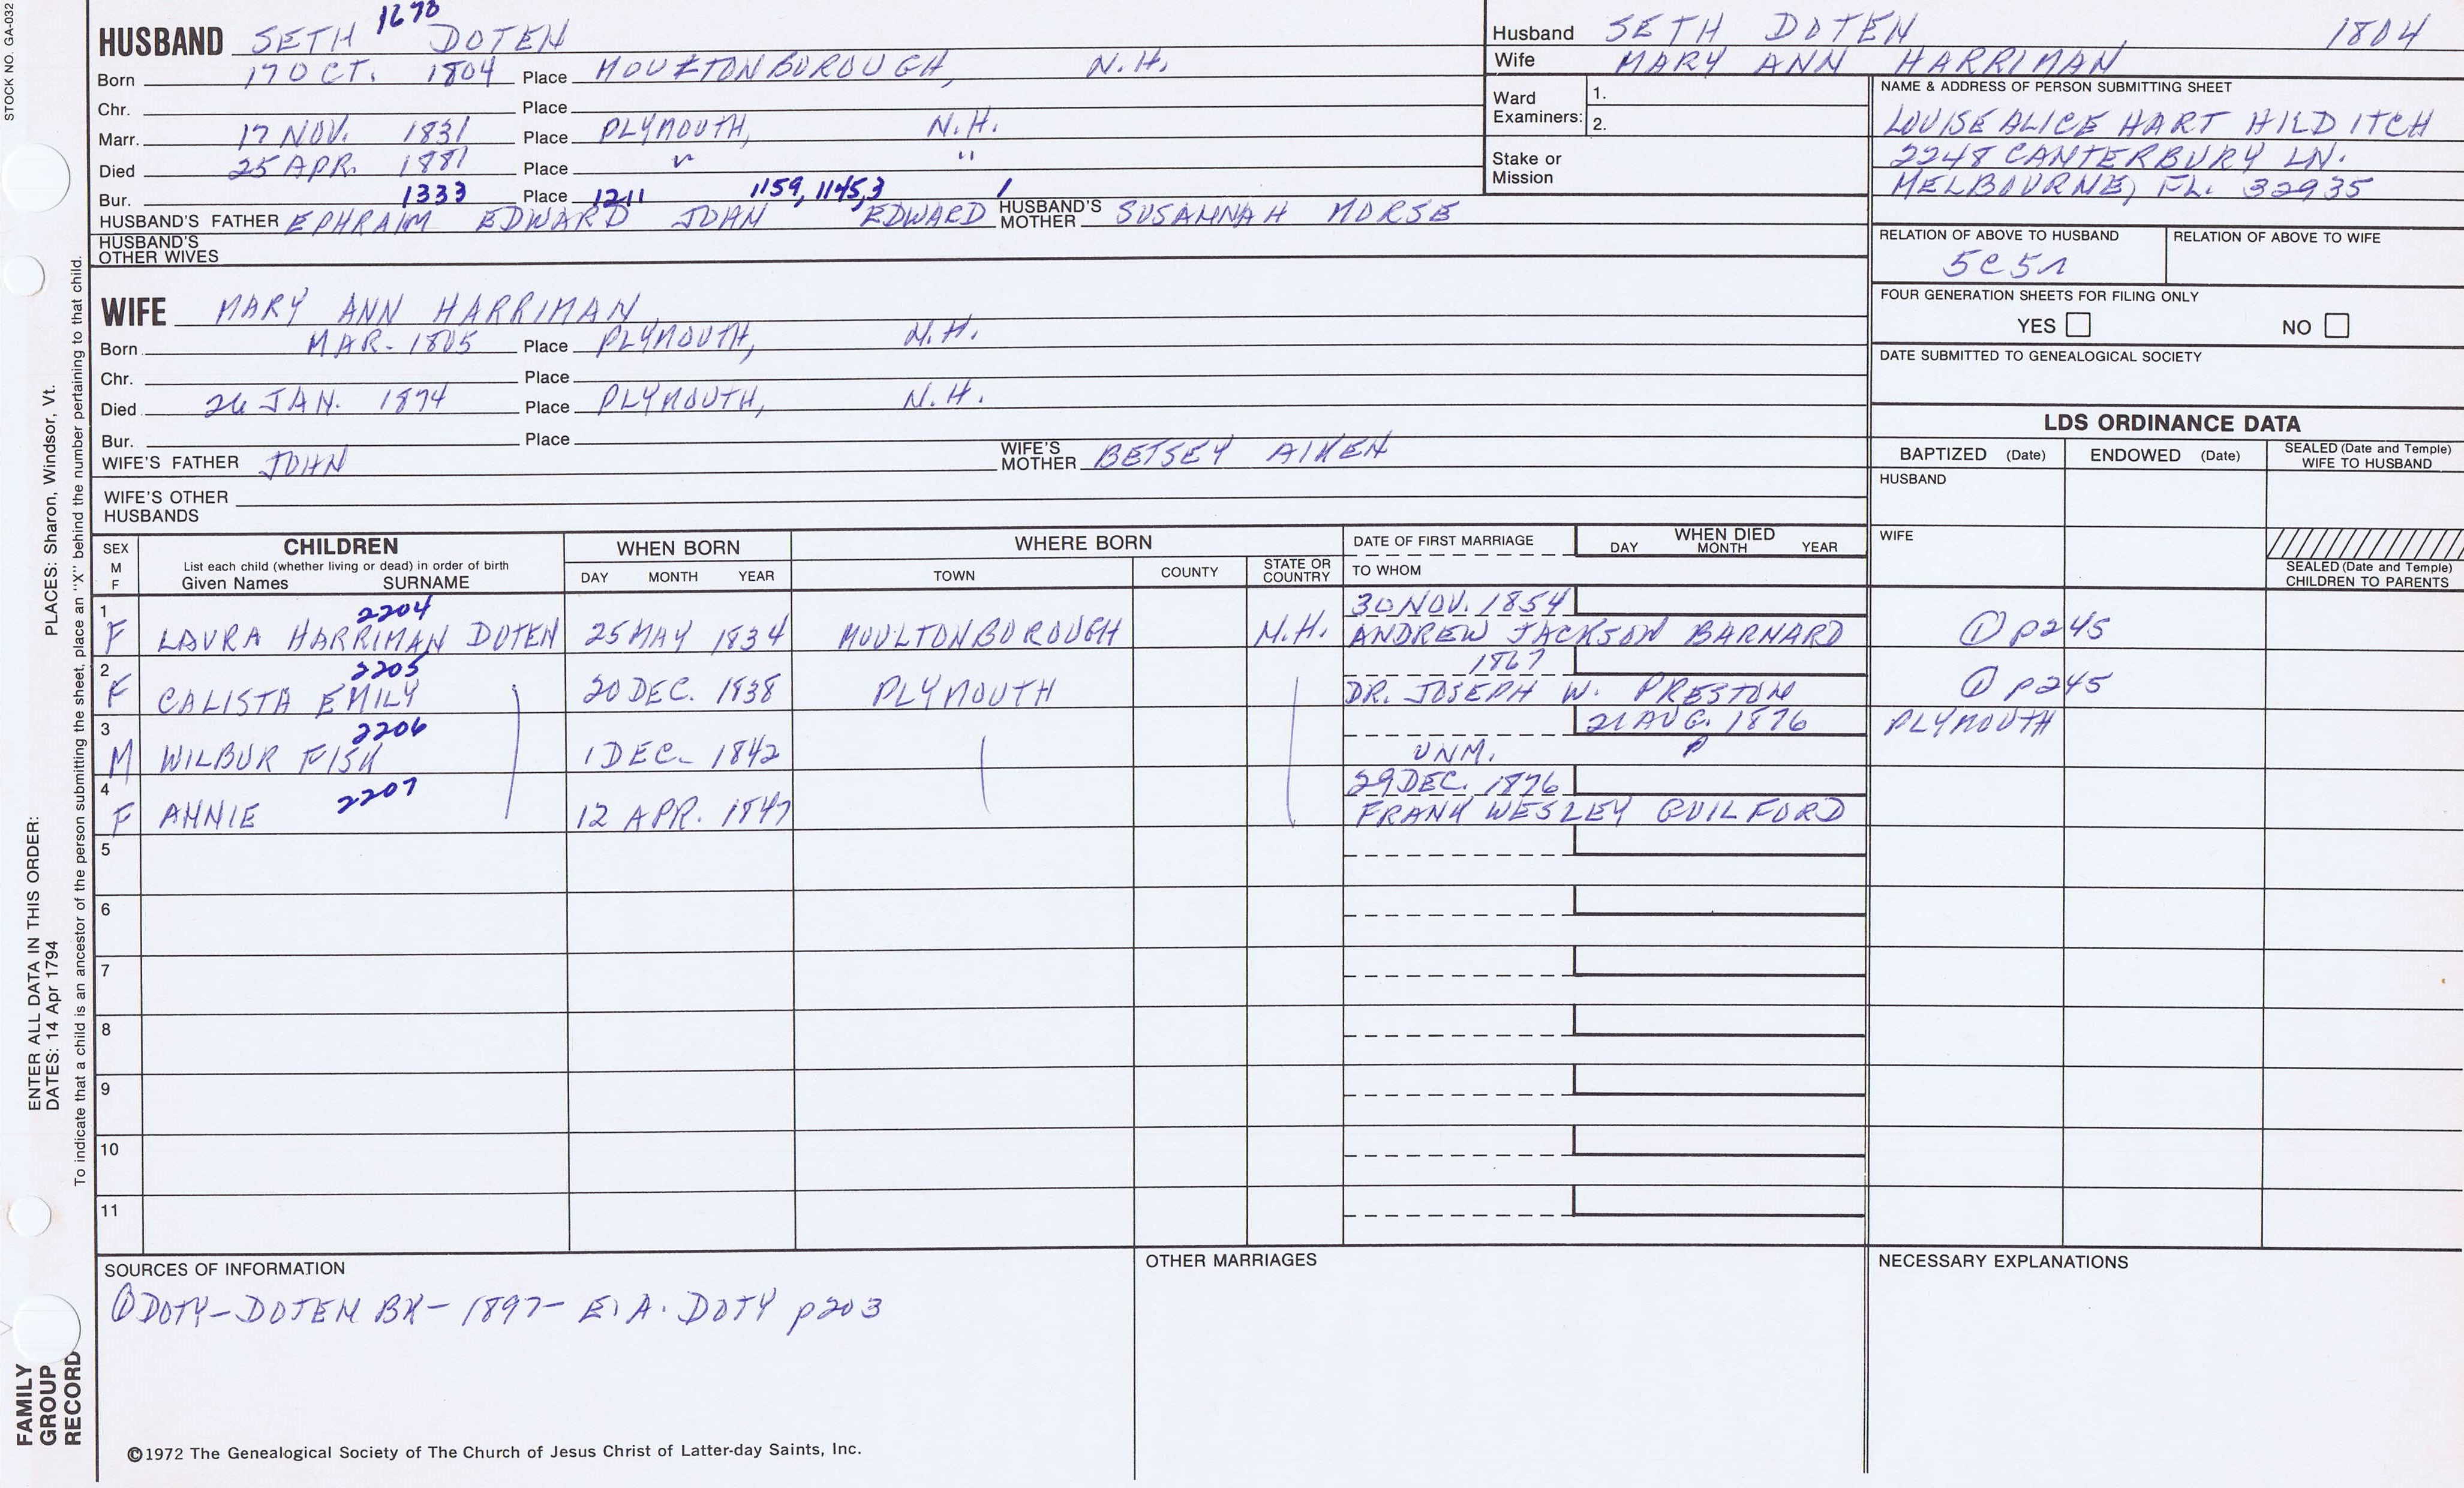 STOCK NO. GA-032
1673
HUSBAND SETH DOTEN
Born 17 OCT. 1804 Place MOULTONBOROUGH, N.H.
Chr. Place
Marr. 17 NOV. 1831 Place PLYMOUTH, N.H.
Died 25 APR. 1881 Place " "
Bur. Place
1333 1211 1159, 1145, 3 1
HUSBAND'S FATHER EPHRAIM EDWARD JOHN EDWARD HUSBAND'S MOTHER SUSANNAH MORSE
HUSBAND'S OTHER WIVES
WIFE MARY ANN HARRIMAN
Born MAR. 1805 Place PLYMOUTH, N.H.
Chr. Place
Died 26 JAN. 1894 Place PLYMOUTH, N.H.
Bur. Place
WIFE'S FATHER JOHN WIFE'S MOTHER BETSEY AIKEN
WIFE'S OTHER HUSBANDS
Husband SETH DOTEN 1804
Wife MARY ANN HARRIMAN
Ward Examiners: 1.
2.
Stake or Mission
NAME & ADDRESS OF PERSON SUBMITTING SHEET
LOUISE ALICE HART HILDITCH
2248 CANTERBURY LN.
MELBOURNE, FL. 32935
RELATION OF ABOVE TO HUSBAND RELATION OF ABOVE TO WIFE
5C5R
FOUR GENERATION SHEETS FOR FILING ONLY
YES NO
DATE SUBMITTED TO GENEALOGICAL SOCIETY
LDS ORDINANCE DATA
BAPTIZED (Date) ENDOWED (Date) SEALED (Date and Temple) WIFE TO HUSBAND
HUSBAND
WIFE
SEALED (Date and Temple) CHILDREN TO PARENTS
SEX M F CHILDREN WHEN BORN WHERE BORN DATE OF FIRST MARRIAGE WHEN DIED
List each child (whether living or dead) in order of birth
Given Names SURNAME DAY MONTH YEAR TOWN COUNTY STATE OR COUNTRY TO WHOM DAY MONTH YEAR
1 2204 30 NOV. 1854
F LAURA HARRIMAN DOTEN 25 MAY 1834 MOULTONBOROUGH N.H. ANDREW JACKSON BARNARD ① p245
2 2205 1867
F CALISTA EMILY 20 DEC. 1838 PLYMOUTH DR. JOSEPH W. PRESTON ① p245
3 2206 21 AUG. 1876 PLYMOUTH
M WILBUR FISK 1 DEC. 1842 UNM. P
4 2207 29 DEC. 1876
F ANNIE 12 APR. 1847 FRANK WESLEY GUILFORD
5
6
7
8
9
10
11
SOURCES OF INFORMATION
① DOTY-DOTEN BK - 1897 - E. A. DOTY p203
OTHER MARRIAGES
NECESSARY EXPLANATIONS
©1972 The Genealogical Society of The Church of Jesus Christ of Latter-day Saints, Inc.
FAMILY GROUP RECORD
ENTER ALL DATA IN THIS ORDER:
DATES: 14 Apr 1794 PLACES: Sharon, Windsor, Vt.
To indicate that a child is an ancestor of the person submitting the sheet, place an "X" behind the number pertaining to that child.